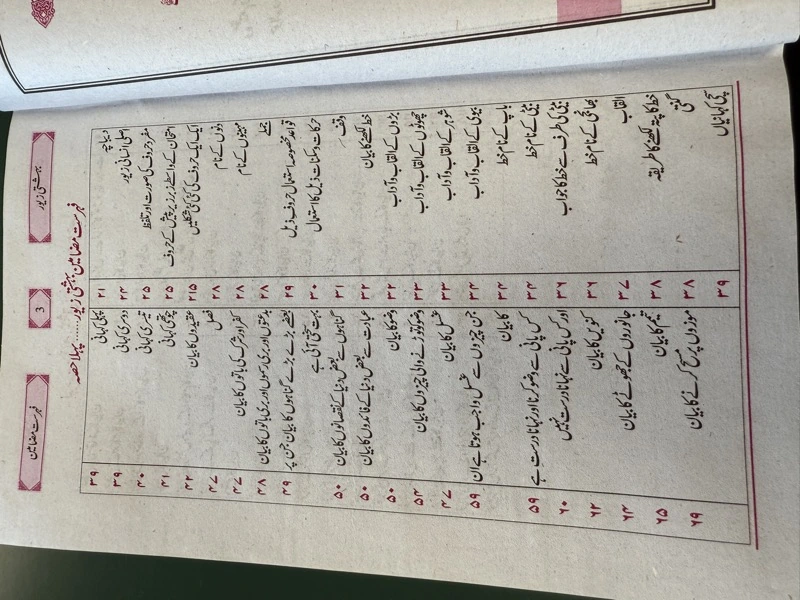 بہشتی زیور
3
فہرست مضامین
فہرست مضامین بہشتی زیور..... پہلا حصہ
دیباچہ ۲۱
اصلی انسانی زیور ۲۴
مفرد حروف کی صورت اور تلفظ ۲۵
امتحان کے واسطے زبر زیر پیش کے حروف ۲۵
ایک ایک حرف کی کئی کئی شکلیں ۲۱۵
دنوں کے نام ۲۸
مہینوں کے نام ۲۸
جملے ۲۸
قواعد مخصوصہ استعمال حروف ذیل ۲۹
حرکات و سکنات ذیل کا استعمال ۳۰
وقف ۳۱
خط لکھنے کا بیان ۳۲
بڑوں کے القاب و آداب ۳۲
چھوٹوں کے القاب و آداب ۳۳
شوہر کے القاب و آداب ۳۳
بیوی کے القاب و آداب ۳۴
باپ کے نام خط ۳۴
بیٹی کے نام خط ۳۴
بیٹی کی طرف سے خط کا جواب ۳۶
بھانجی کے نام خط ۳۶
القاب ۳۷
خط کا پتہ لکھنے کا طریقہ ۳۸
گنتی ۳۸
سچی کہانیاں ۳۹
پہلی کہانی ۳۹
دوسری کہانی ۳۹
تیسری کہانی ۴۰
چوتھی کہانی ۴۱
عقیدوں کا بیان ۴۲
فصل ۴۷
کفر اور شرک کی باتوں کا بیان ۴۷
بدعتوں اور بری رسموں اور بری باتوں کا بیان ۴۸
بعضے بڑے بڑے گناہوں کا بیان جن پر ۴۹
بہت سختی آئی ہے
گناہوں سے بعض دنیا کے نقصانوں کا بیان ۵۰
عبادت سے بعض دنیا کے فائدوں کا بیان ۵۰
وضو کا بیان ۵۰
وضو کو توڑنے والی چیزوں کا بیان ۵۴
غسل کا بیان ۴۷
جن چیزوں سے غسل واجب ہوتا ہے ان ۵۹
کا بیان
کس پانی سے وضو کرنا اور نہانا درست ہے ۵۹
اور کس پانی سے نہانا درست نہیں ۶۰
کنویں کا بیان ۶۲
جانوروں کے جھوٹے کا بیان ۶۴
تیمم کا بیان ۶۵
موزوں پر مسح کرنے کا بیان ۶۹